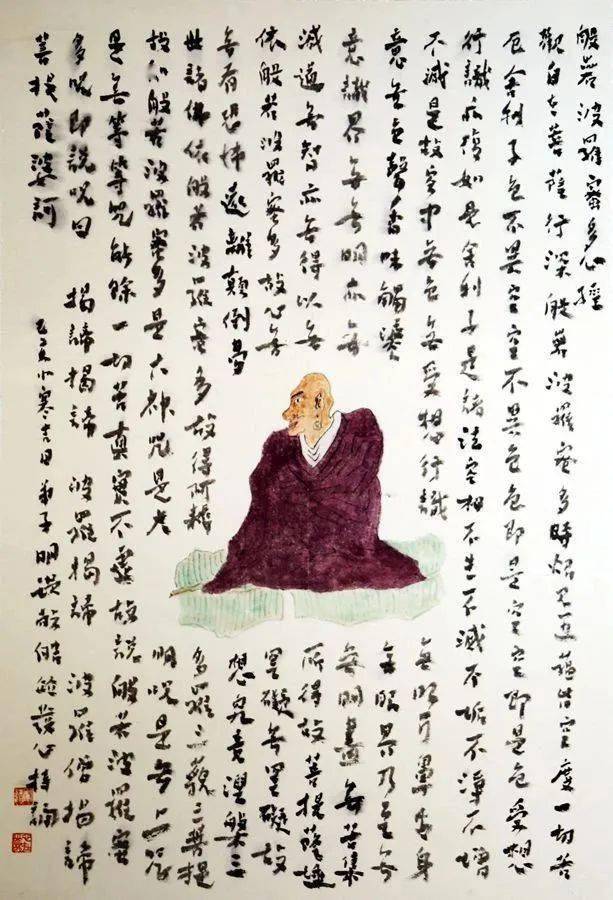 般若波羅蜜多心經
觀自在菩薩行深般若波羅蜜多時照見五蘊皆空度一切苦
厄舍利子色不異空空不異色色即是空空即是色受想
行識亦復如是舍利子是諸法空相不生不滅不垢不淨不增
不減是故空中無色無受想行識無眼耳鼻舌身
意無色聲香味觸法無眼界乃至無
意識界無無明亦無無明盡無苦集
滅道無智亦無得以無所得故菩提薩埵
依般若波羅蜜多故心無罣礙無罣礙故
無有恐怖遠離顛倒夢想究竟涅槃三
世諸佛依般若波羅蜜多故得阿耨多羅三藐三菩提
故知般若波羅蜜多是大神咒是大明咒是無上咒
是無等等咒能除一切苦真實不虛故說般若波羅蜜
多咒即說咒曰 揭諦揭諦 波羅揭諦 波羅僧揭諦
菩提薩婆訶
小寒吉日弟子明